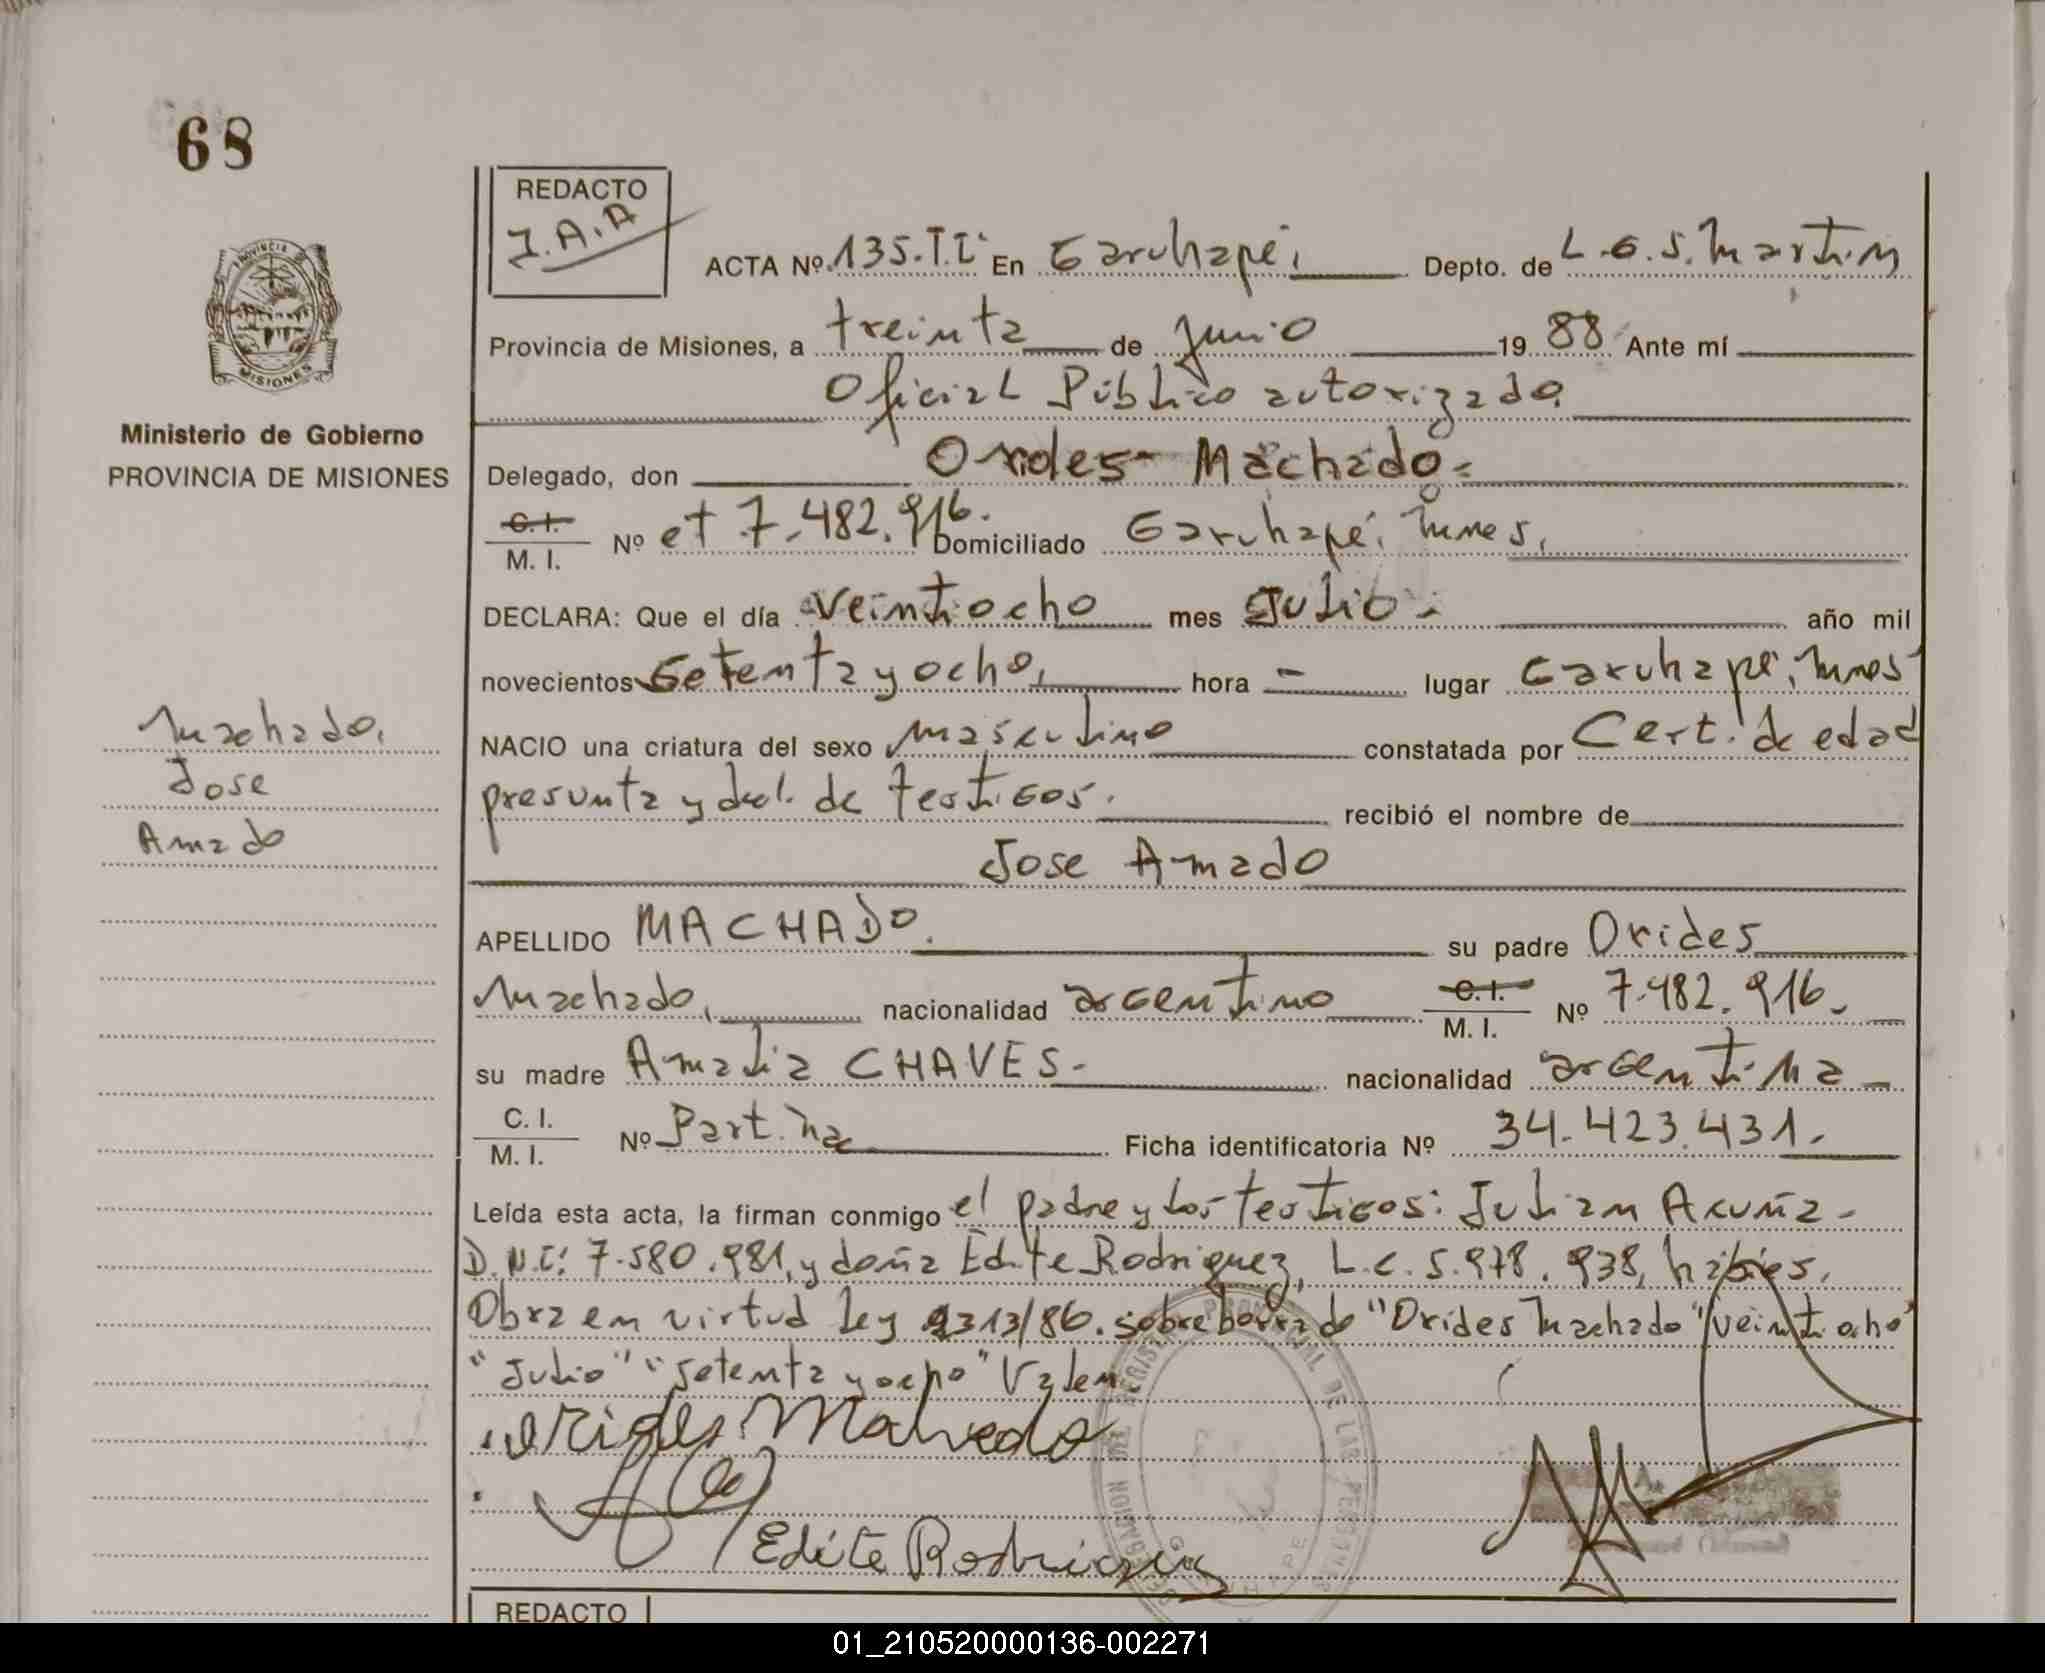 68
REDACTO
J.A.A
ACTA Nº 135.T.I: En Garuhapé, Depto. de L.G.S. Martin
PROVINCIA
MISIONES
Provincia de Misiones, a treinta de Junio 19 88 Ante mí
Oficial Público autorizado.
Ministerio de Gobierno
PROVINCIA DE MISIONES
Delegado, don Orides Machado.
C. I.
M. I. Nº et 7.482.916. Domiciliado Garuhapé, Mnes,
DECLARA: Que el día veintiocho mes Julio año mil
novecientos Setenta y ocho, hora - lugar Garuhapé, Mnes
Machado,
NACIO una criatura del sexo masculino constatada por Cert. de edad
Jose
presunta y decl. de testigos. recibió el nombre de
Amado
Jose Amado
APELLIDO MACHADO. su padre Orides
Machado, nacionalidad argentino C. I. M. I. Nº 7.482.916.
su madre Amalia CHAVES. nacionalidad argentina
C. I.
M. I. Nº Part. Ficha identificatoria Nº 34.423.431.
Leída esta acta, la firman conmigo el padre y los testigos: Julian Acuña-
D.N.I: 7.580.981, y doña Edite Rodriguez, L.C. 5.978.938, hábiés,
Obra en virtud Ley 2313/86. sobreborrado "Orides Machado" "veintiocho"
"Julio" "Setenta y ocho" Valen
Orides Machado
Edite Rodriguez
REDACTO
01_210520000136-002271